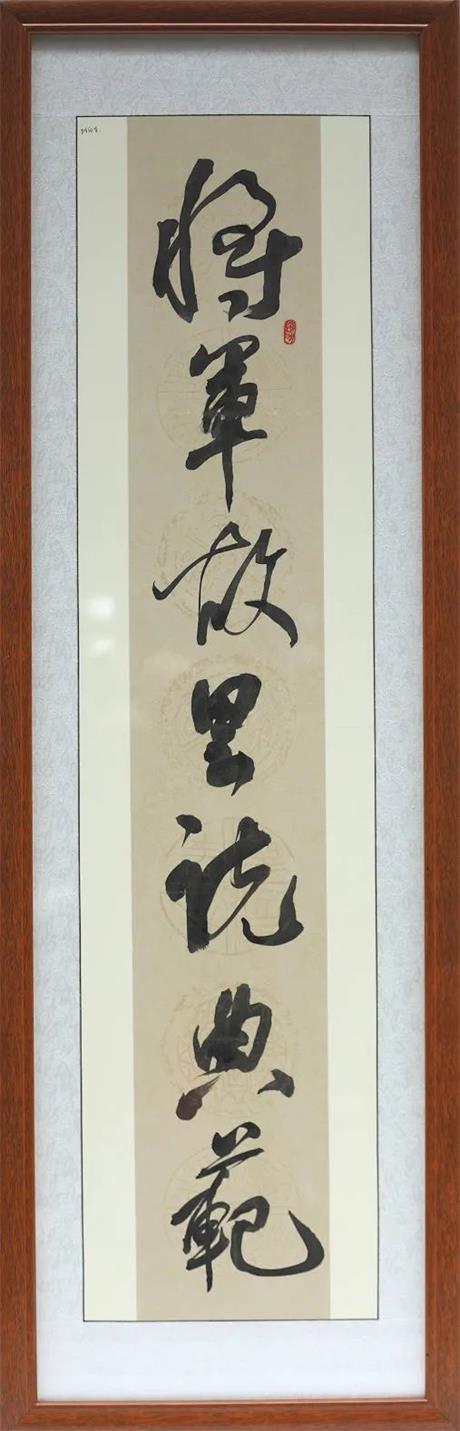 將軍故里說典範